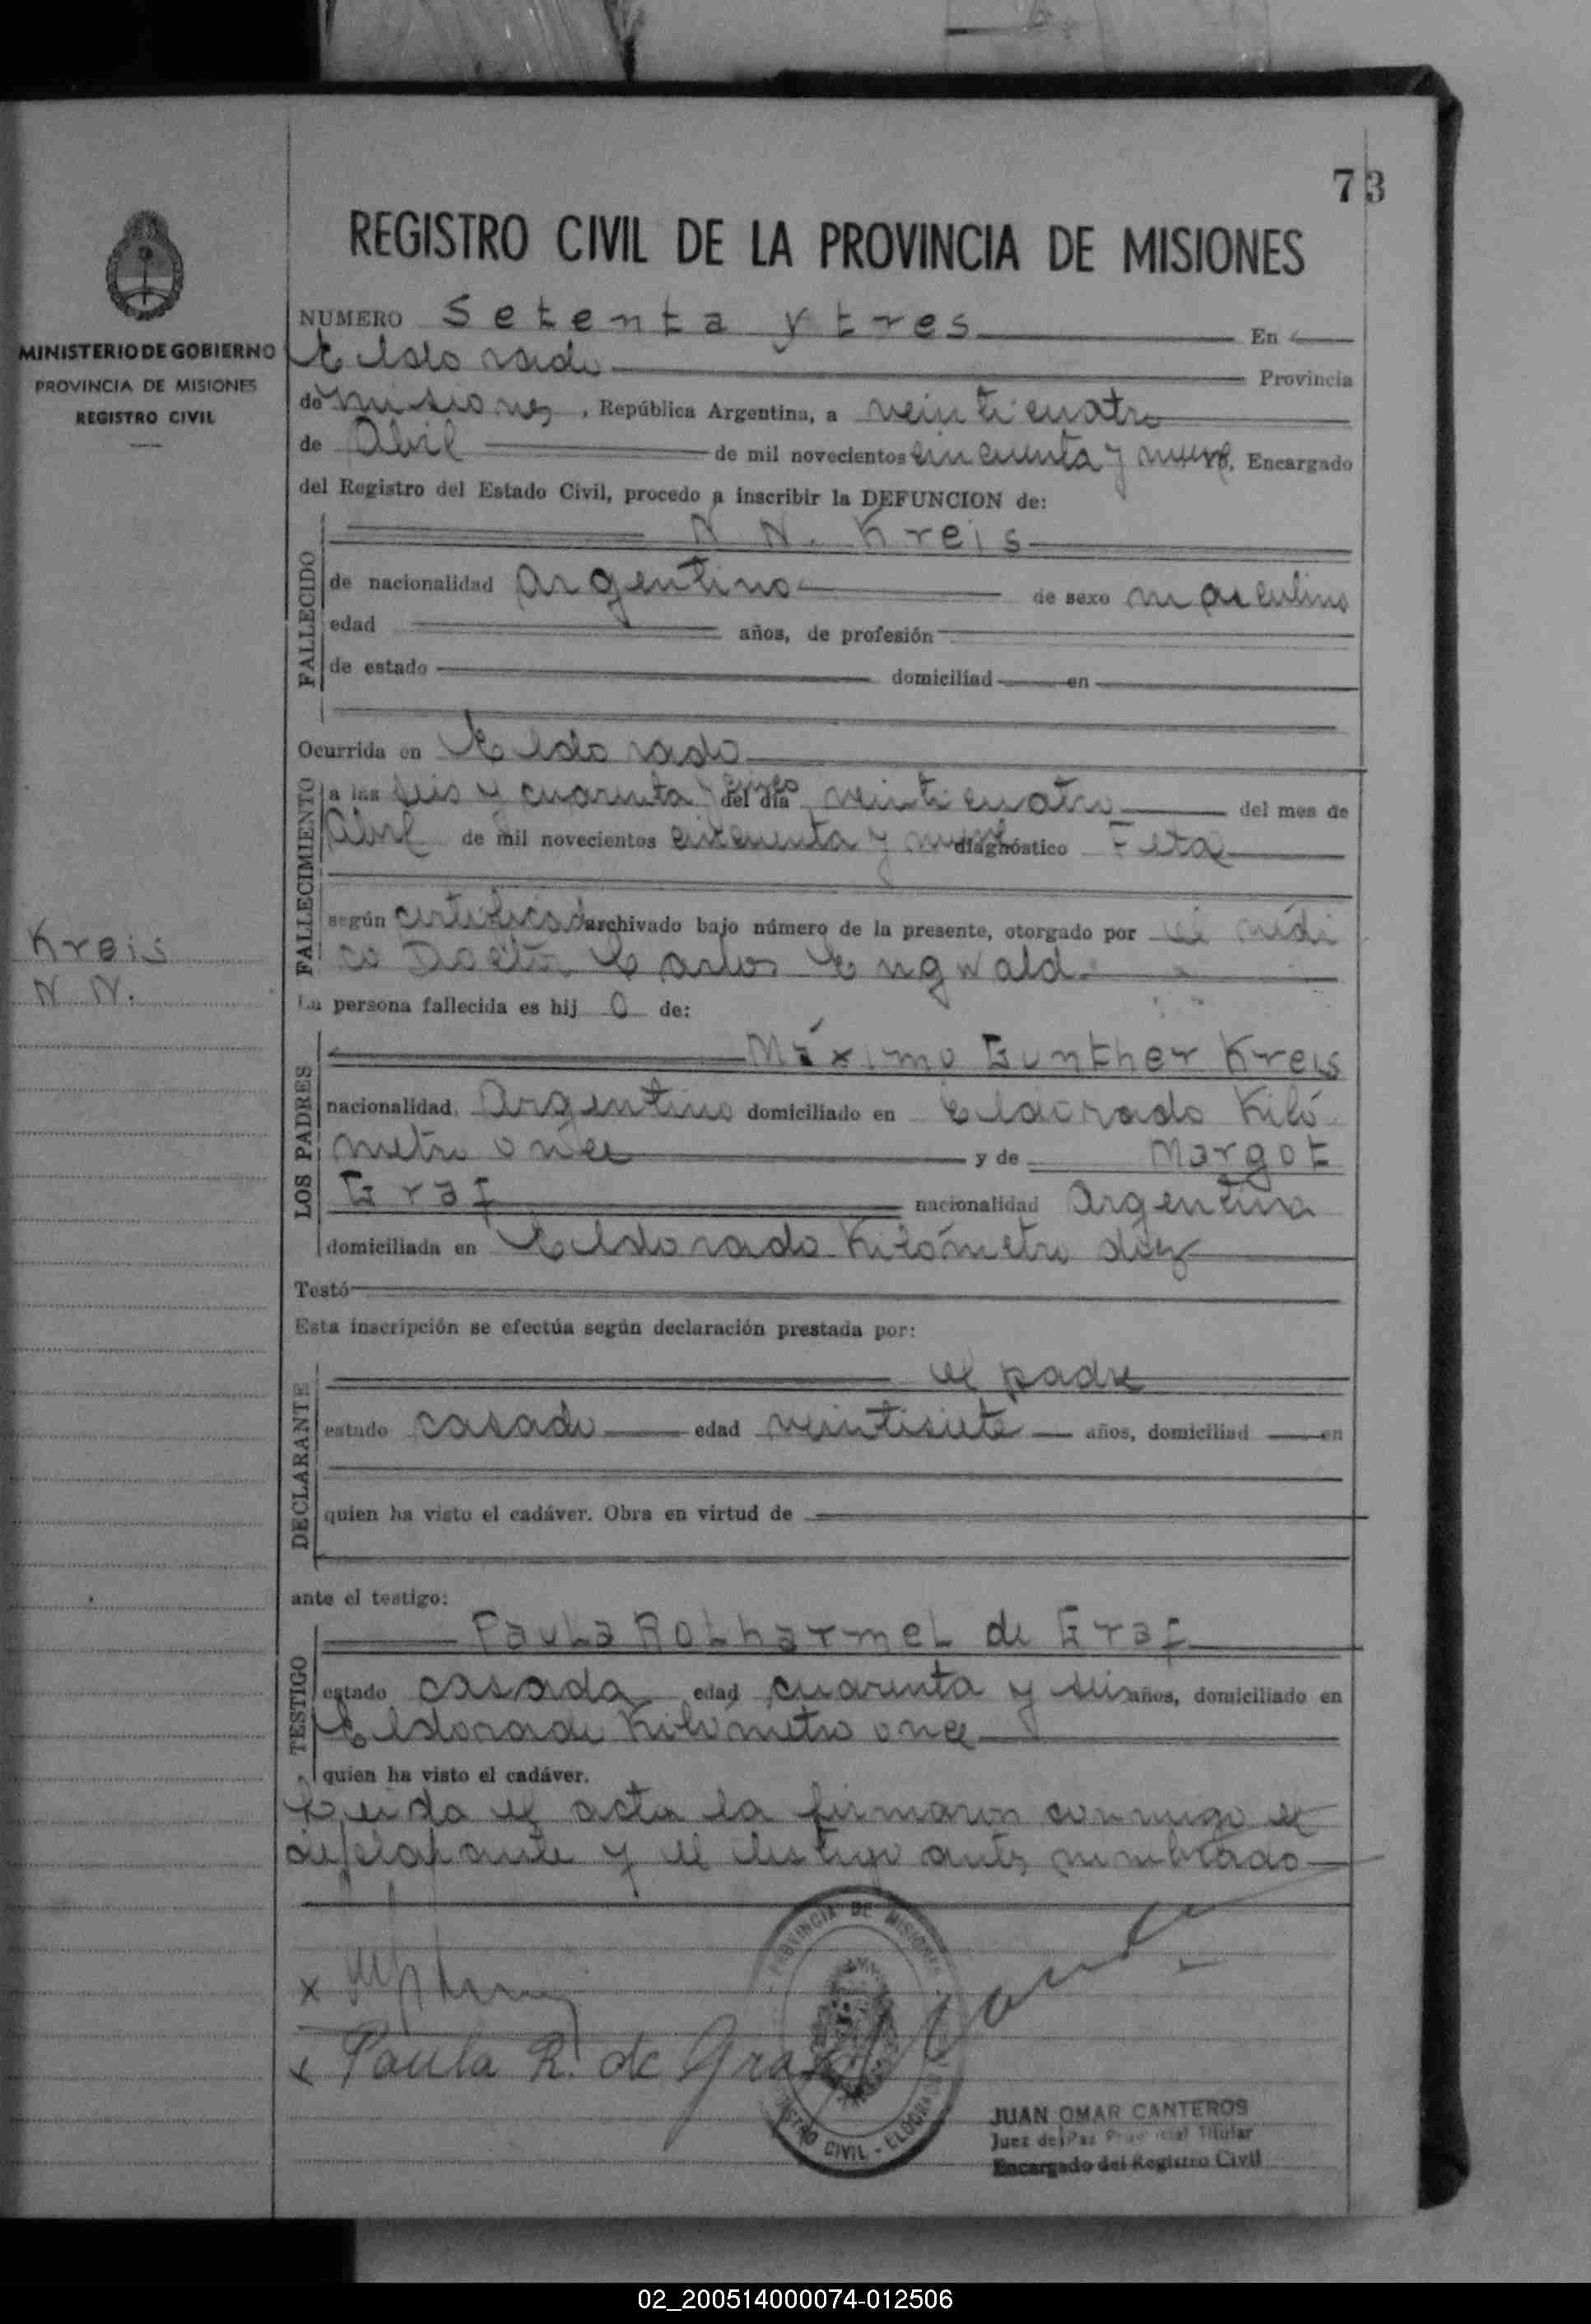 73
REGISTRO CIVIL DE LA PROVINCIA DE MISIONES
MINISTERIO DE GOBIERNO
PROVINCIA DE MISIONES
REGISTRO CIVIL
NUMERO Setenta y tres En
Eldorado Provincia
de Misiones, República Argentina, a veinticuatro
de Abril de mil novecientos cincuenta y nueve Yo, Encargado
del Registro del Estado Civil, procedo a inscribir la DEFUNCION de:
FALLECIDO
N N. Kreis
de nacionalidad Argentino de sexo masculino
edad años, de profesión
de estado domiciliad en
Ocurrida en Eldorado
FALLECIMIENTO
a las seis y cuarenta y cinco del día veinticuatro del mes de
Abril de mil novecientos cincuenta y nueve diagnóstico Fetal
según certificado archivado bajo número de la presente, otorgado por el médi
co Doctor Carlos Engwald
Kreis
N N.
La persona fallecida es hij o de:
LOS PADRES
Máximo Gunther Kreis
nacionalidad Argentino domiciliado en Eldorado Kiló
metro once y de Margot
Graf nacionalidad Argentina
domiciliada en Eldorado Kilómetro diez
Testó
Esta inscripción se efectúa según declaración prestada por:
DECLARANTE
el padre
estado casado edad veintisiete años, domiciliad en
quien ha visto el cadáver. Obra en virtud de
ante el testigo:
TESTIGO
Paula Rotharmel de Graf
estado casada edad cuarenta y seis años, domiciliado en
Eldorado Kilómetro once
quien ha visto el cadáver.
Leida el acta la firmaron conmigo el
declarante y el testigo antes nombrado
x
x Paula R. de Graf
PROVINCIA DE MISIONES
REGISTRO CIVIL - ELDORADO
JUAN OMAR CANTEROS
Juez de Paz Provincial Titular
Encargado del Registro Civil
02_200514000074-012506